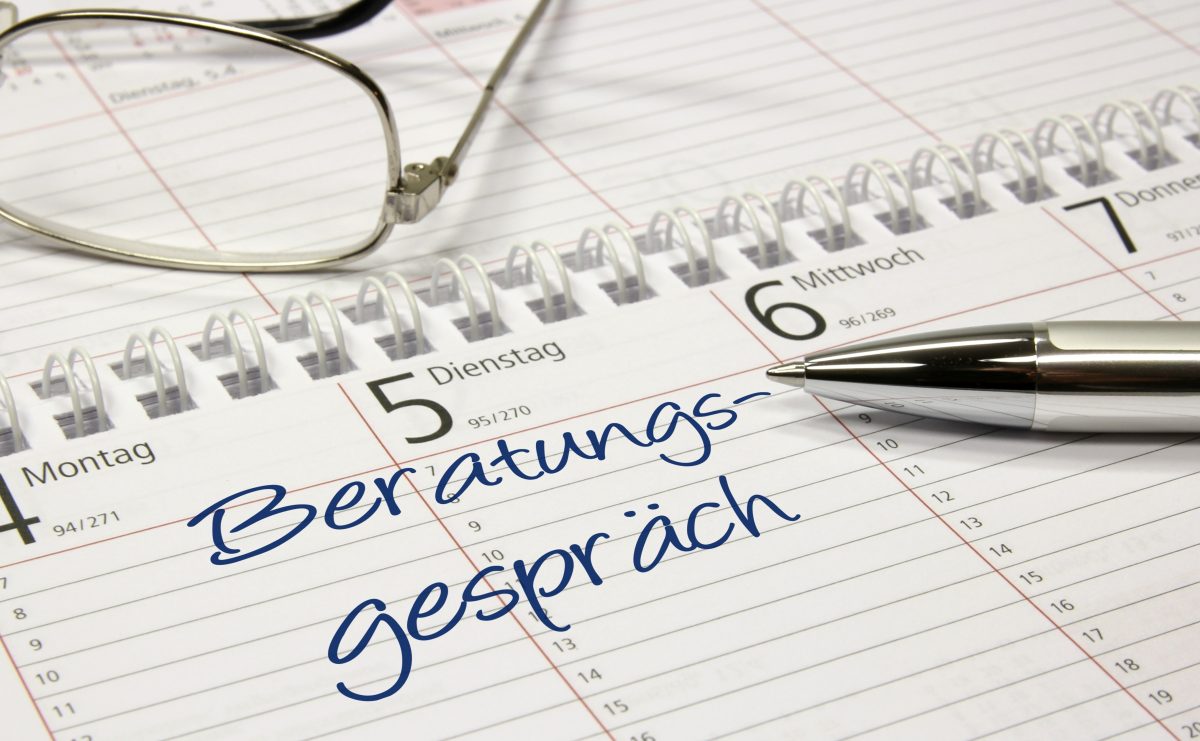 Mittwoch,
Dienstag, 5.4.
7 Donner
6 Mittwoch
96/269
5 Dienstag
95/270
4 Montag
94/271
Beratungs-
gespräch
7
8
9
10
11
7
9
10
12
13
14
15
9
10
11
12
13
14
15
16
17
18
19
7
8